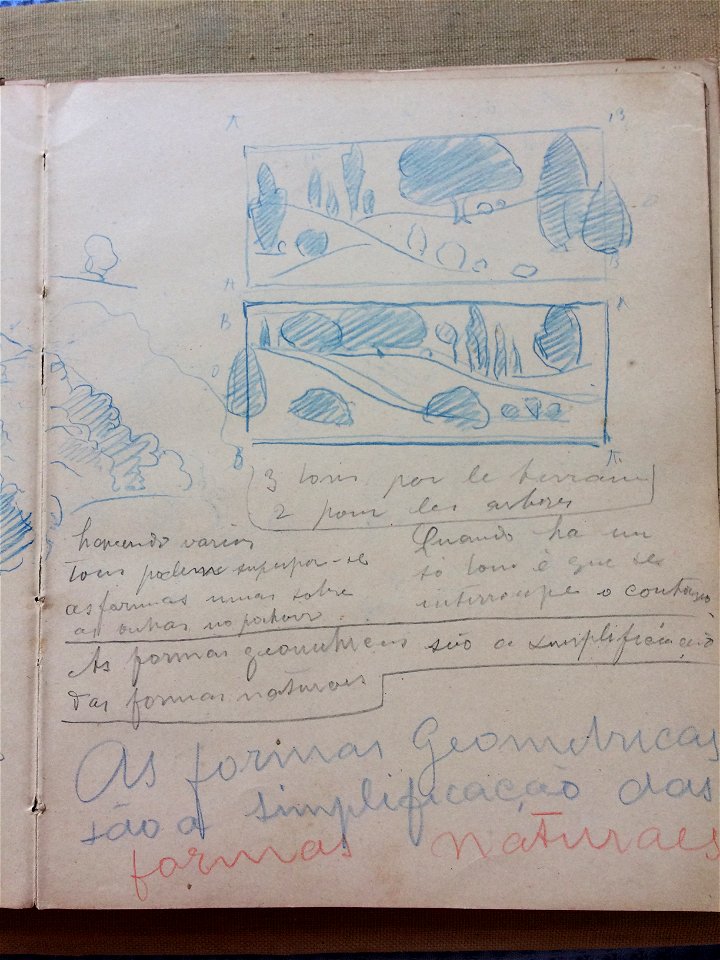 A B
A B
B A
B A
3 tons por le terrain
2 pour les arbores
havendo varios
tons podem superpor-se
as formas umas sobre
as outras no pochoir
Quando ha um
só tom é que se
interrompe o contorno
As formas geometricas são a simplificação
das formas naturaes
As formas Geometricas
são a simplificação das
formas naturaes